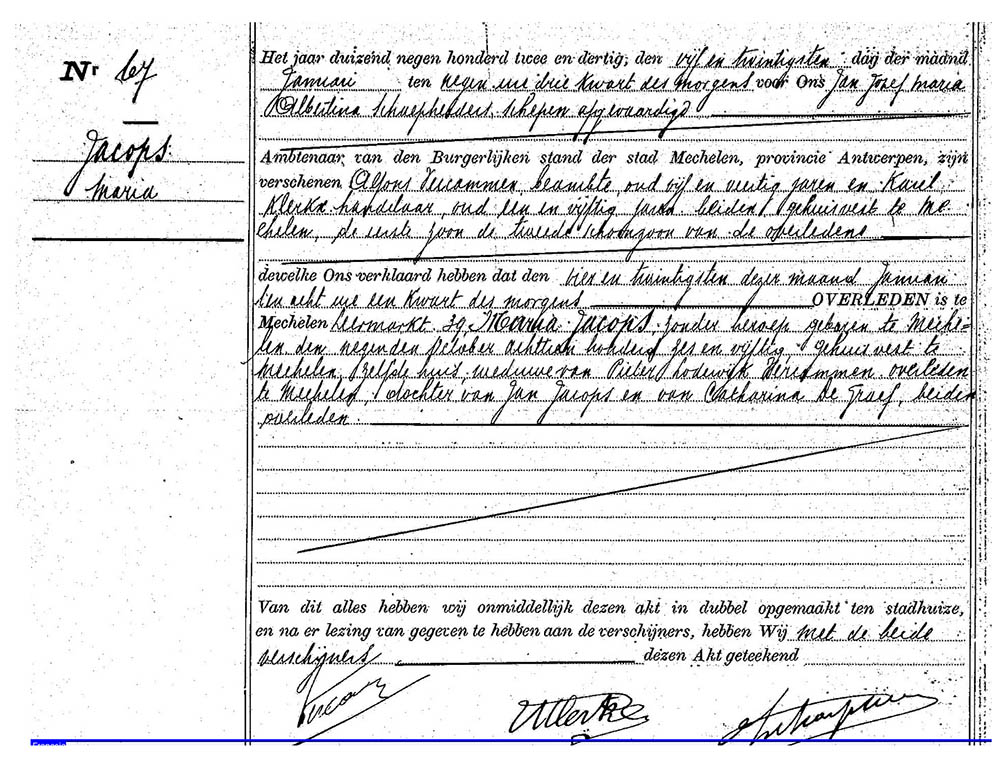 Nr 67
Jacops
Maria
Het jaar duizend negen honderd twee en dertig, den vijf en twintigsten dag der maand
Januari ten negen ure drie kwart des morgens voor Ons Jan Jozef Maria
Albertina Schaepherders schepen afgevaardigd
Ambtenaar van den Burgerlijken stand der stad Mechelen, provincie Antwerpen, zijn
verschenen Alfons Vercammen, beambte, oud vijf en veertig jaren en Karel
Klerkx handelaar, oud een en vijftig jaren beiden gehuisvest te Me-
chelen, de eerste zoon de tweede schoonzoon van de overledene
dewelke Ons verklaard hebben dat den vier en twintigsten dezer maand Januari
ten acht ure een kwart des morgens OVERLEDEN is te
Mechelen Leermarkt 39 Maria Jacops, zonder beroep geboren te Meche-
len den negenden October achttien honderd zes en vijftig, gehuisvest te
Mechelen, zelfde huis, weduwe van Pieter Lodewijk Vercammen overleden
te Mechelen, dochter van Jan Jacops en van Catharina De Graef, beiden
overleden
Van dit alles hebben wij onmiddellijk dezen akt in dubbel opgemaakt ten stadhuize,
en na er lezing van gegeven te hebben aan de verschijners, hebben Wij met de beide
verschijners dezen Akt geteekend